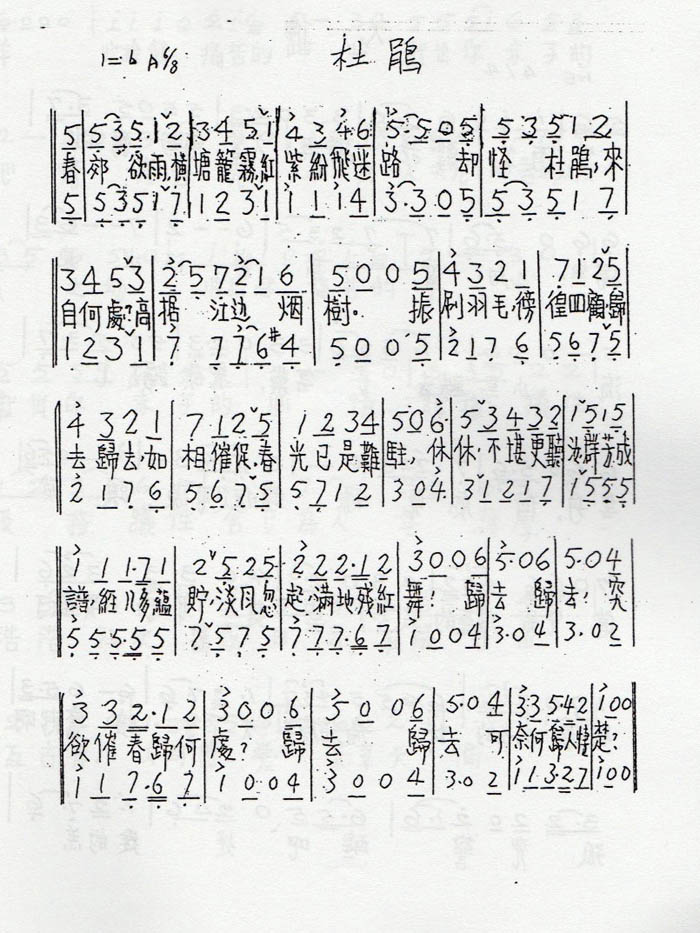 杜鵑
1=bA 6/8
5|5 3 5.1 2|3 4 5 1|4 3 4 6|5.5 0 5|5 3 5 1 2
春 郊 欲雨,橫 塘籠霧,紅 紫紛飛迷 路 却 怪 杜鵑,來
5|5 3 5 1 7|1 2 3 1|1 1 1 4|3.3 0 5|5 3 5 1 7
3 4 5 3|2 5 7 2 1 6|5 0 0 5|4 3 2 1|7 1 2 5
自何處?高 江边 烟 樹。 振 刷羽毛,徬 徨四顧歸
1 2 3 1|7 7 7 6 #4|5 0 0 5|2 1 7 6|5 6 7 5
4 3 2 1|7 1 2 5|1 2 3 4|5 0 6|5 3 4 3 2|1 5 1 5
去歸去,如 相催促.春 光已是難 駐,休 休,不堪更聽 群芳成
2 1 7 6|5 6 7 5|5 7 1 2|3 0 4|3 1 2 1 7|1 5 5 5
1 1 1.7 1|2 5 2 5|2 2 2.1 2|3 0 0 6|5.0 6|5.0 4
譜,經 貯,淡風忽 起,滿地殘紅 舞! 歸 去 歸 去!突
5 5 5.5 5|7 5 7 5|7 7 7.6 7|1 0 0 4|3.0 4|3.0 2
3 3 2.1 2|3 0 0 6|5 0 0 6|5.0 4|3 3 5.4 2|1 0 0
欲催春歸何 處? 歸 去 歸 去 可 奈何 人悽 楚?
1 1 7.6 7|1 0 0 4|3 0 0 4|3.0 2|1 1 3.2 7|1 0 0